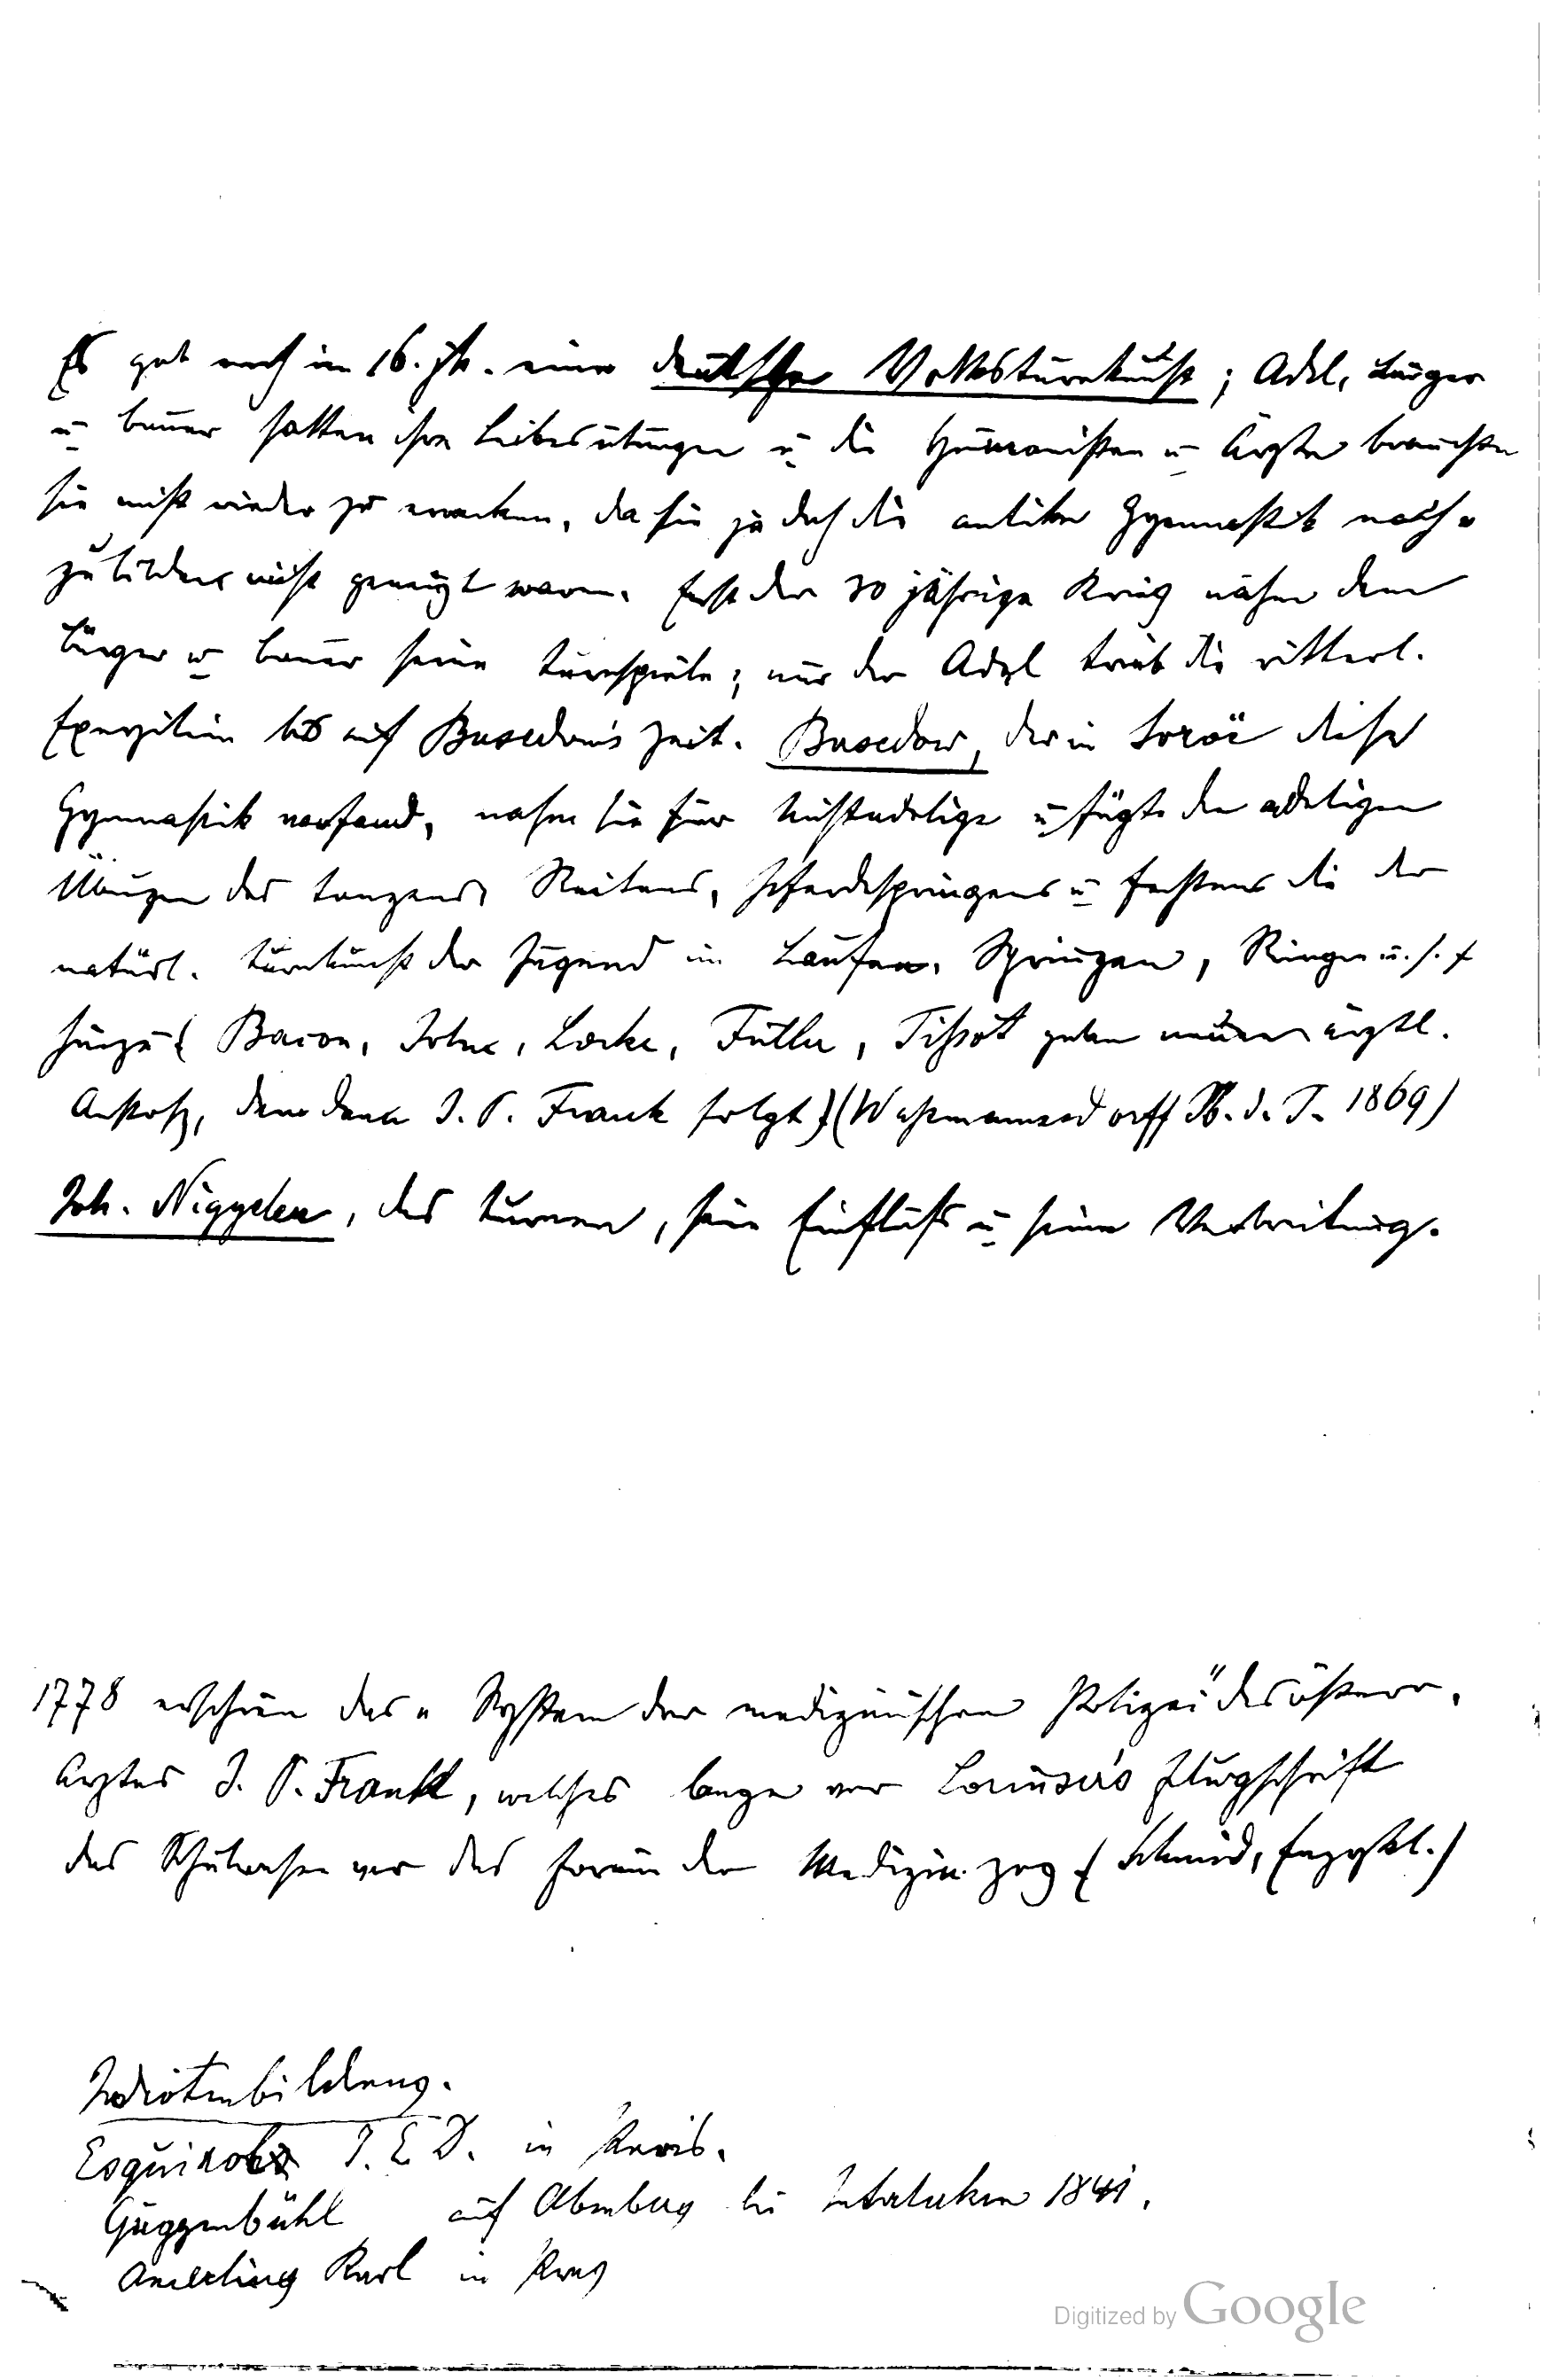 Es gab noch im 16. Jh. eine deutsche Volksturnkunst; Adel, Bürger
u Bauer hatten ihre Leibesübungen u die Humanisten u Ärzte brauchten
sie nicht wieder zu erwecken, da sie ja doch die antike Gymnastik nach-
zubilden nicht geneigt waren. Erst der 30 jährige Krieg nahm dem
Bürger u Bauer seine Turnspiele; nur der Adel trieb die ritterl.
Exerzitien bis auf Basedow's Zeit. Basedow, der in Soröe diese
Gymnastik vorfand, nahm sie für Nichtadelige u fügte den adeligen
Übungen des Tanzens, Reitens, Pferdespringens u Fechtens die der
natürl. Turnkunst der Jugend im Laufen, Springen, Ringen u. s. f
hinzu (Bacon, Locke, Fuller, Tissot geben neuen ärztl.
Anstoß, dem dann J. P. Frank folgt) (Waßmannsdorff Jb. d. T. 1869)
Joh. Niggeler, das Turnen, sein Einfluß u seine Verbreitung.
1778 erschien das "System der medizinischen Polizei" des österr.
Arztes J. P. Frank, welches lange vor Lorinser's Flugschrift
das Schulwesen vor das Forum der Medizin zog (Schmid, Enzykl.)
Idiotenbildung.
Esquirol J. E. D. in Paris.
Guggenbühl auf Abenberg bei Interlaken 1841.
Amerling Karl in Prag
Digitized by Google